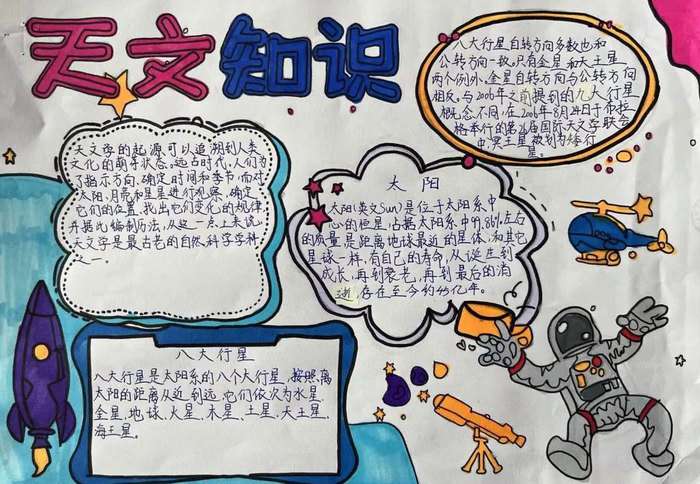 天文知识
八大行星自转方向多数也和
公转方向一致。只有金星和天王星
两个例外。金星自转方向与公转方向
相反。与2006年之前提到的九大行星
概念不同,在2006年8月24日于布拉
格举行的第26届国际天文学联会
中冥王星被划为矮行
星。
天文学的起源可以追溯到人类
文化的萌芽状态。远古时代,人们为
了指示方向、确定时间和季节,而对
太阳、月亮和星星进行观察,确定
它们的位置、找出它们变化的规律
并据此编制历法,从这一点上来说,
天文学是最古老的自然科学学科
之一。
太阳
太阳(英文Sun)是位于太阳系中
心的恒星,占据太阳系中99.86%左右
的质量是距离地球最近的星体,和其它
星球一样,有自己的寿命,从诞生到
成长,再到衰老,再到最后的消
逝,存在至今约45亿年。
八大行星
八大行星是太阳系的八个大行星,按照离
太阳的距离从近到远,它们依次为水星、
金星、地球、火星、木星、土星、天王星、
海王星。